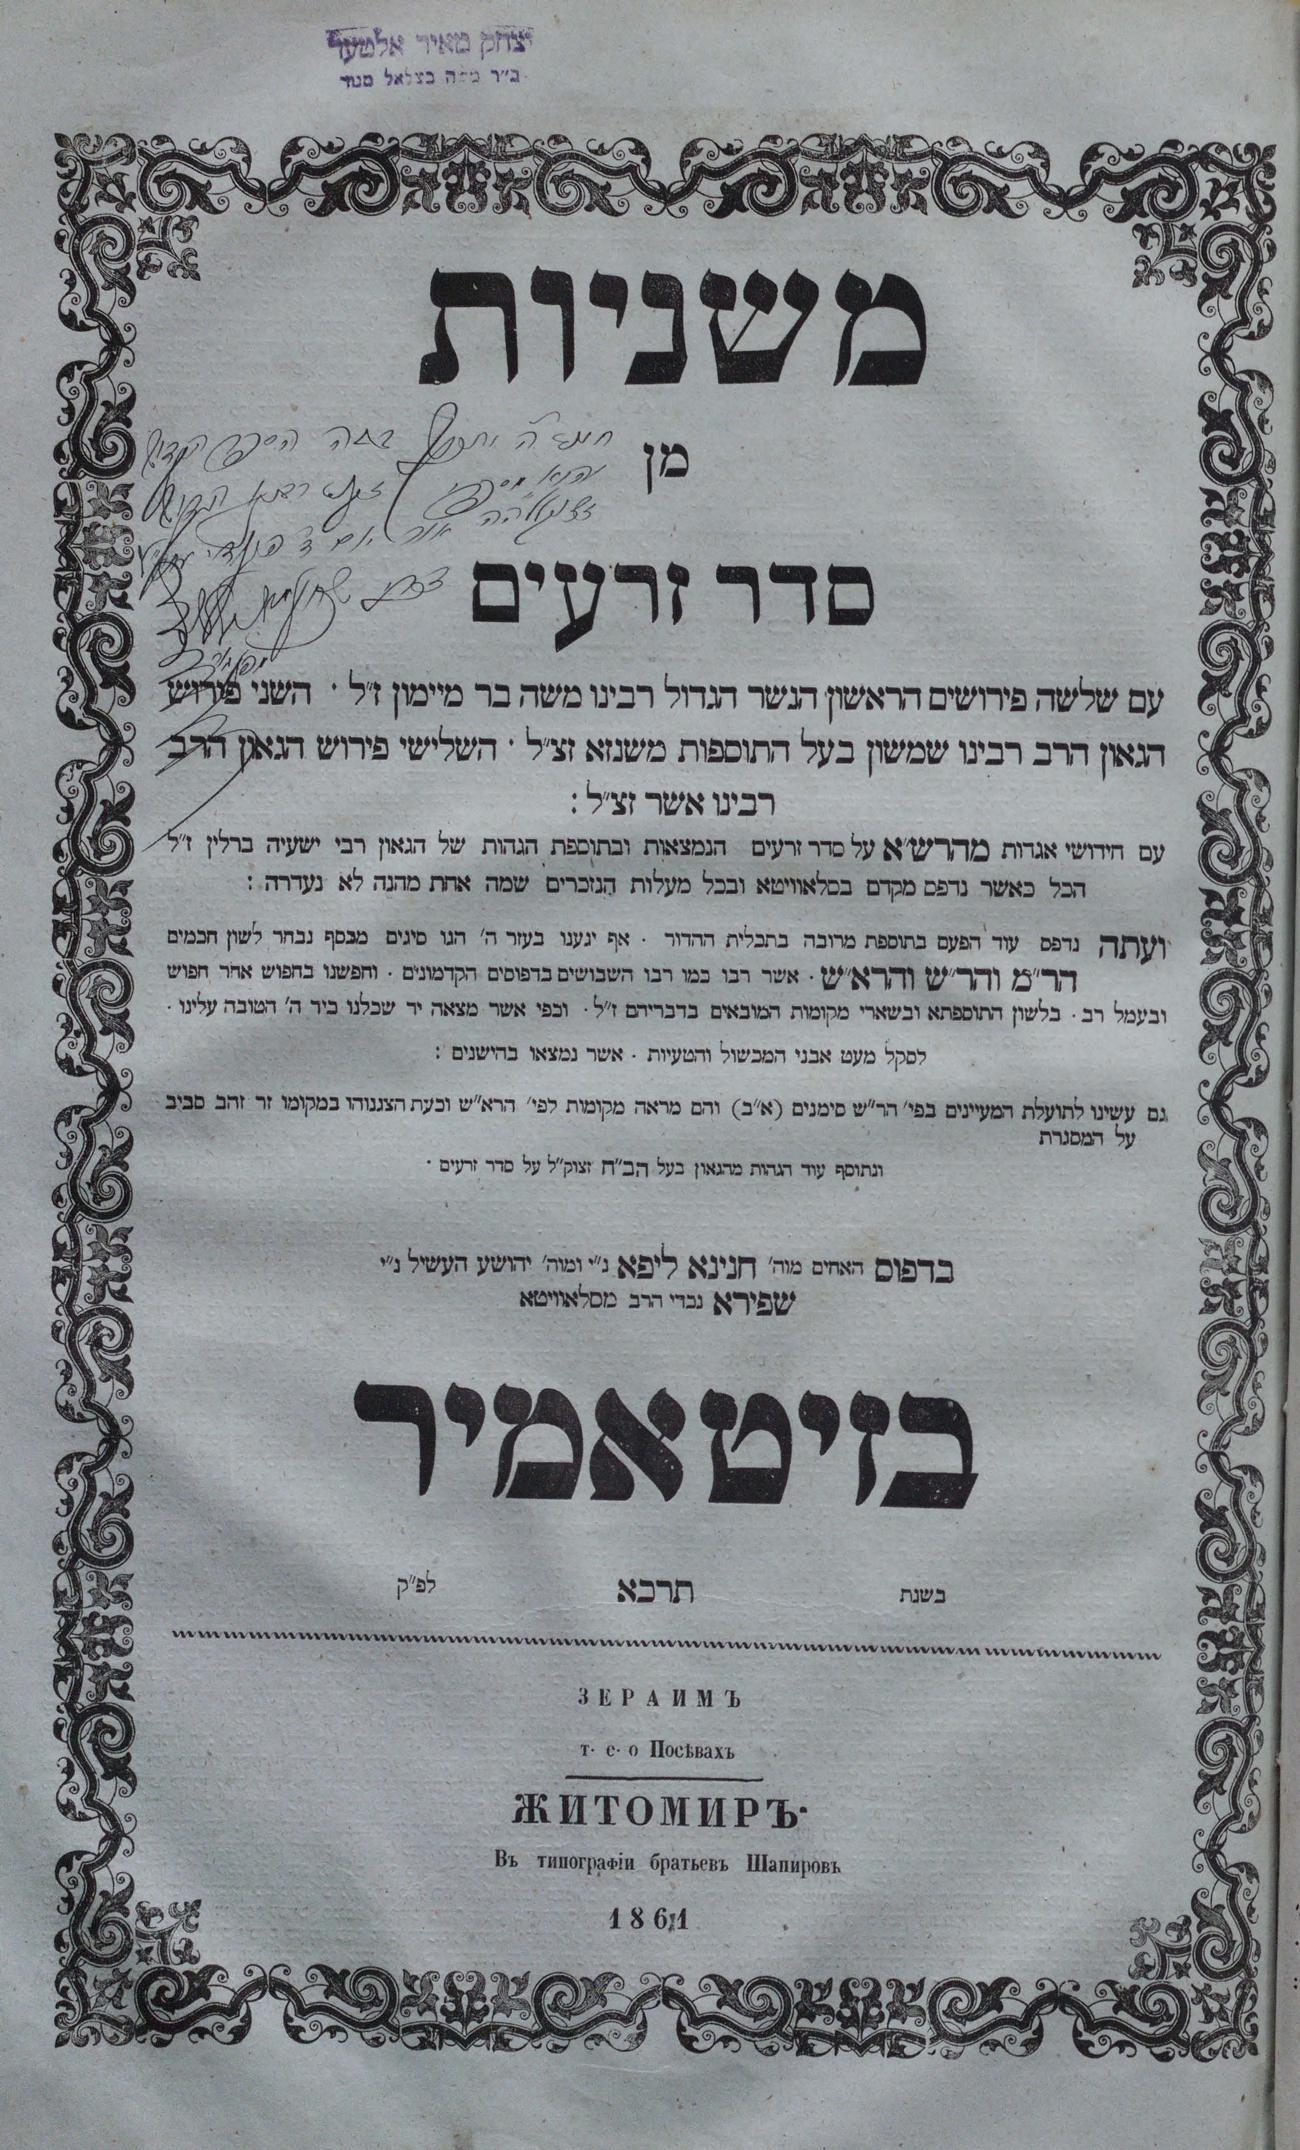 יצחק מאיר אלטער
משניות
מן
סדר זרעים
עם שלשה פירושים הראשון הנשר הגדול רבינו משה בר מיימון ז״ל · השני פירוש
הגאון הרב רבינו שמשון בעל התוספות משנזא זצ״ל · השלישי פירוש הגאון הרב
רבינו אשר זצ״ל :
עם חידושי אגדות מהרש״א על סדר זרעים הנמצאות ובתוספת הגהות של הגאון רבי ישעיה ברלין ז״ל
הכל כאשר נדפס מקדם בסלאוויטא ובכל מעלות הנזכרים שמה אחת מהנה לא נעדרה :
ועתה נדפס עוד הפעם בתוספת מרובה בתכלית ההדור · אף יגענו בעזר ה׳ הגו סיגים מכסף נבחר לשון חכמים
הר״מ והר״ש והרא״ש · אשר רבו כמו רבו השבושים בדפוסים הקדמונים · וחפשנו בחפוש אחר חפוש
ובעמל רב · בלשון התוספתא ובשארי מקומות המובאים בדבריהם ז״ל · וכפי אשר מצאה יד שכלנו ביד ה׳ הטובה עלינו ·
לסקל מעט אבני המכשול והטעיות · אשר נמצאו בהישנים :
גם עשינו לתועלת המעיינים בפי׳ הר״ש סימנים (א״ב) והם מראה מקומות לפי׳ הרא״ש וכעת הצגנוהו במקומו זר זהב סביב
על המסגרת
ונתוסף עוד הגהות מהגאון בעל הב״ח זצוק״ל על סדר זרעים ·
בדפוס האחים מוה׳ חנינא ליפא נ״י ומוה׳ יהושע העשיל נ״י
שפירא נכדי הרב מסלאוויטא
בזיטאמיר
בשנת תרכא לפ״ק
ЗЕРАИМЪ
т. е. о Посѣвахъ
ЖИТОМИРЪ.
Въ типографіи братьевъ Шапировъ
1861